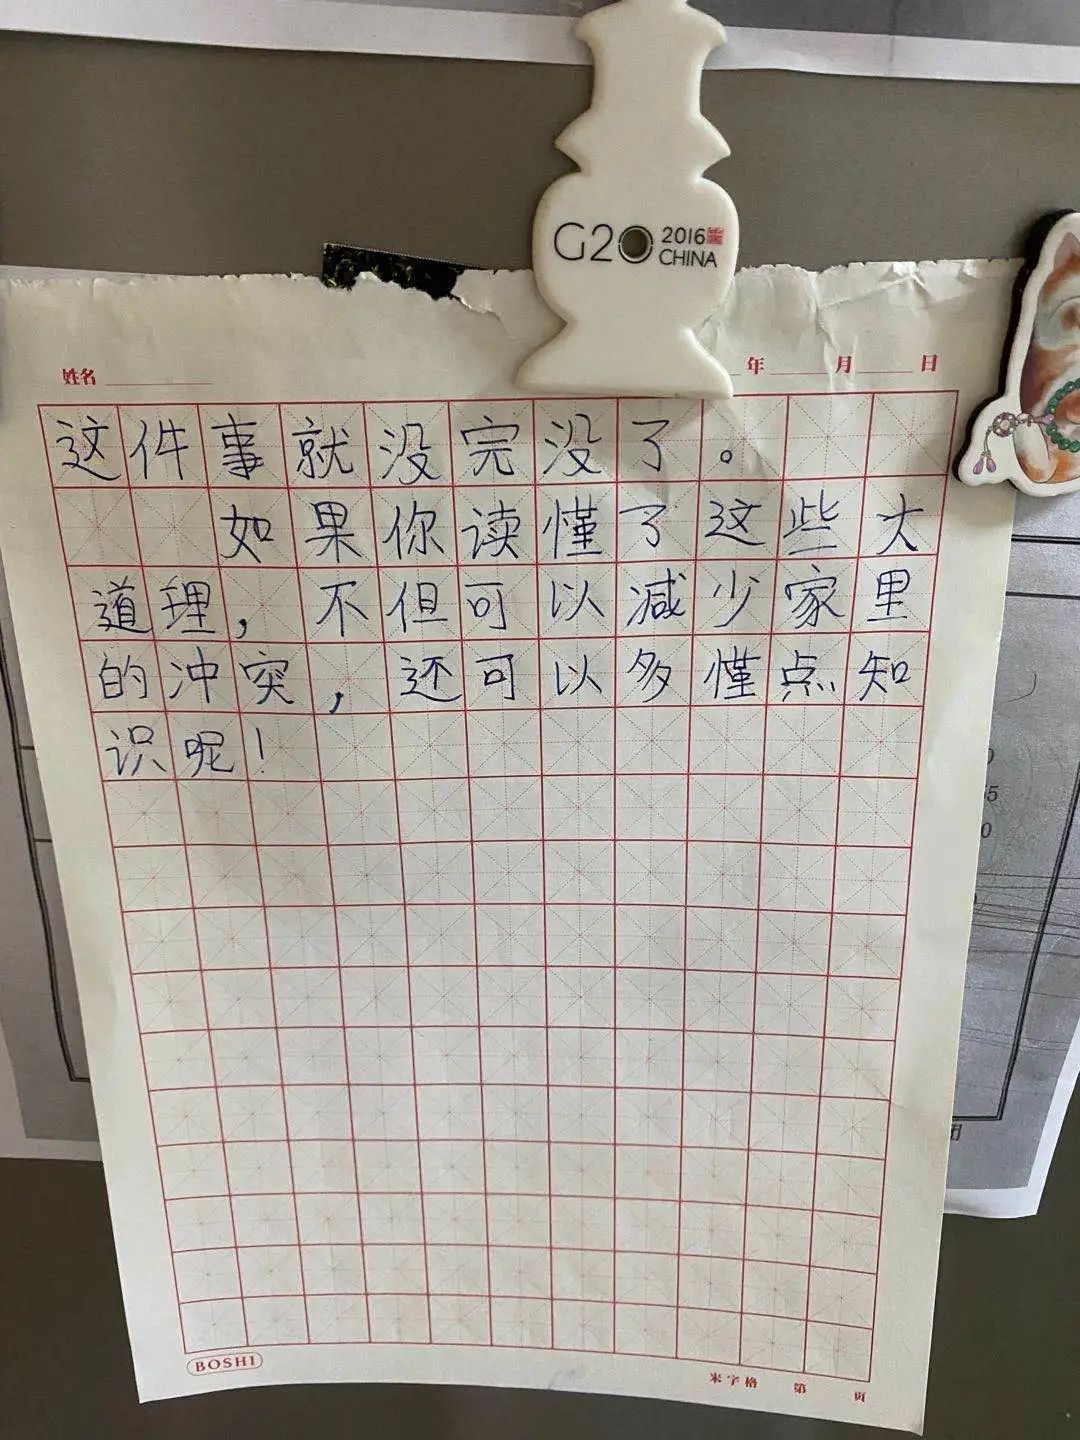 G20 2016 CHINA
姓名 年 月 日
这件事就没完没了。
如果你读懂了这些大
道理，不但可以减少家里
的冲突，还可以多懂点知
识呢！
BOSHI
米字格 第 页